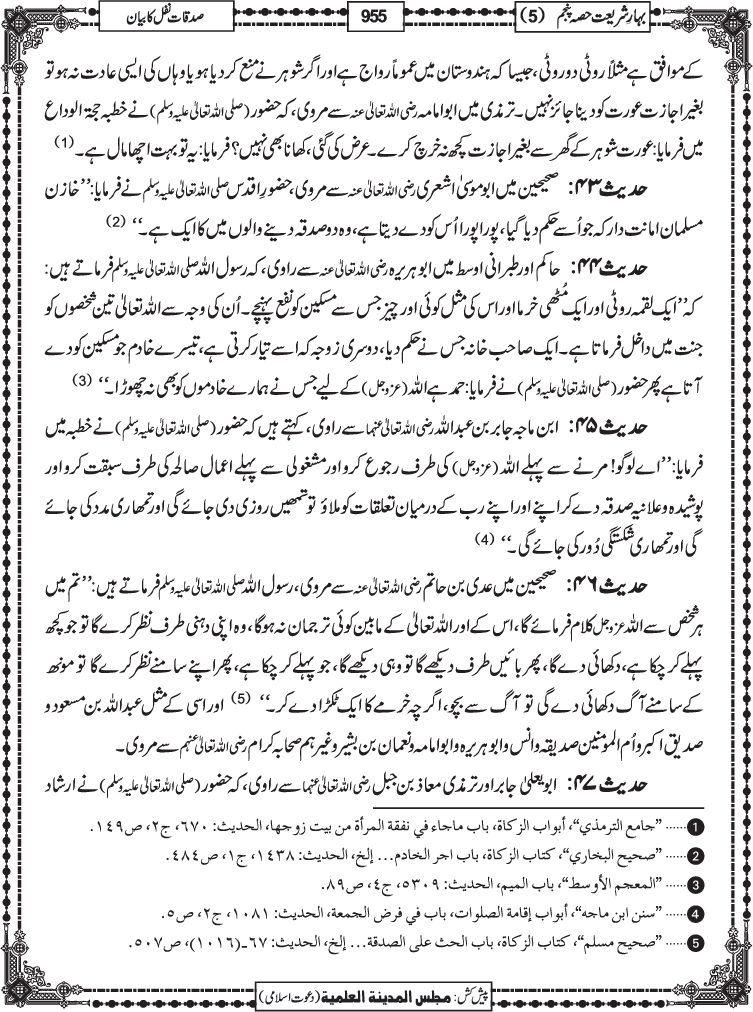 بہار شریعت حصہ پنجم (5)
955
صدقات نفل کا بیان
کے موافق ہے مثلاً روٹی دو روٹی، جیسا کہ ہندوستان میں عموماً رواج ہے اور اگر شوہر نے منع کر دیا ہو یا وہاں کی ایسی عادت نہ ہو تو
بغیر اجازت عورت کو دینا جائز نہیں۔ ترمذی میں ابوامامہ رضی اللہ تعالیٰ عنہ سے مروی، کہ حضور (صلی اللہ تعالیٰ علیہ وسلم) نے خطبہ حجۃ الوداع
میں فرمایا: عورت شوہر کے گھر سے بغیر اجازت کچھ نہ خرچ کرے۔ عرض کی گئی، کھانا بھی نہیں؟ فرمایا: یہ تو بہت اچھا مال ہے۔ (1)
حدیث ۴۳: صحیحین میں ابوموسیٰ اشعری رضی اللہ تعالیٰ عنہ سے مروی، حضورِ اقدس صلی اللہ تعالیٰ علیہ وسلم نے فرمایا: ’’خازن
مسلمان امانت دار کہ جو اُسے حکم دیا گیا، پورا پورا اُس کو دے دیتا ہے، وہ دو صدقہ دینے والوں میں کا ایک ہے۔‘‘ (2)
حدیث ۴۴: حاکم اور طبرانی اوسط میں ابوہریرہ رضی اللہ تعالیٰ عنہ سے راوی، کہ رسول اللہ صلی اللہ تعالیٰ علیہ وسلم فرماتے ہیں:
کہ ’’ایک لقمہ روٹی اور ایک مُٹھی خرما اور اس کی مثل کوئی اور چیز جس سے مسکین کو نفع پہنچے۔ اُن کی وجہ سے اللہ تعالیٰ تین شخصوں کو
جنت میں داخل فرماتا ہے۔ ایک صاحب خانہ جس نے حکم دیا، دوسری زوجہ کہ اسے تیار کرتی ہے، تیسرے خادم جو مسکین کو دے
آتا ہے پھر حضور (صلی اللہ تعالیٰ علیہ وسلم) نے فرمایا: حمد ہے اللہ (عزوجل) کے لیے جس نے ہمارے خادموں کو بھی نہ چھوڑا۔‘‘ (3)
حدیث ۴۵: ابن ماجہ جابر بن عبداللہ رضی اللہ تعالیٰ عنہما سے راوی، کہتے ہیں کہ حضور (صلی اللہ تعالیٰ علیہ وسلم) نے خطبہ میں
فرمایا: ’’اے لوگو! مرنے سے پہلے اللہ (عزوجل) کی طرف رجوع کرو اور مشغولی سے پہلے اعمال صالحہ کی طرف سبقت کرو اور
پوشیدہ و علانیہ صدقہ دے کر اپنے اور اپنے رب کے درمیان تعلقات کو ملاؤ تو تمھیں روزی دی جائے گی اور تمھاری مدد کی جائے
گی اور تمھاری شکستگی دُور کی جائے گی۔‘‘ (4)
حدیث ۴۶: صحیحین میں عدی بن حاتم رضی اللہ تعالیٰ عنہ سے مروی، رسول اللہ صلی اللہ تعالیٰ علیہ وسلم فرماتے ہیں: ’’تم میں
ہر شخص سے اللہ عزوجل کلام فرمائے گا، اس کے اور اللہ تعالیٰ کے مابین کوئی ترجمان نہ ہوگا، وہ اپنی دہنی طرف نظر کرے گا تو جو کچھ
پہلے کر چکا ہے، دکھائی دے گا، پھر بائیں طرف دیکھے گا تو وہی دیکھے گا، جو پہلے کر چکا ہے، پھر اپنے سامنے نظر کرے گا تو مونھ
کے سامنے آگ دکھائی دے گی تو آگ سے بچو، اگرچہ خرمے کا ایک ٹکڑا دے کر۔‘‘ (5) اور اسی کے مثل عبداللہ بن مسعود و
صدیق اکبر و اُم المومنین صدیقہ و انس و ابوہریرہ و ابوامامہ و نعمان بن بشیر وغیرہم صحابہ کرام رضی اللہ تعالیٰ عنہم سے مروی۔
حدیث ۴۷: ابویعلیٰ جابر اور ترمذی معاذ بن جبل رضی اللہ تعالیٰ عنہما سے راوی، کہ حضور (صلی اللہ تعالیٰ علیہ وسلم) نے ارشاد
1 ...... ’’جامع الترمذي‘‘، أبواب الزكاة، باب ماجاء في نفقة المرأة من بيت زوجها، الحديث: ٦٧٠، ج٢، ص١٤٩.
2 ...... ’’صحيح البخاري‘‘، كتاب الزكاة، باب اجر الخادم... إلخ، الحديث: ١٤٣٨، ج١، ص٤٨٤.
3 ...... ’’المعجم الأوسط‘‘، باب الميم، الحديث: ٥٣٠٩، ج٤، ص٨٩.
4 ...... ’’سنن ابن ماجه‘‘، أبواب إقامة الصلوات، باب في فرض الجمعة، الحديث: ١٠٨١، ج٢، ص٥.
5 ...... ’’صحيح مسلم‘‘، كتاب الزكاة، باب الحث على الصدقة... إلخ، الحديث: ٦٧۔(١٠١٦)، ص٥٠٧.
پیش کش: مجلس المدینة العلمیة (دعوت اسلامی)